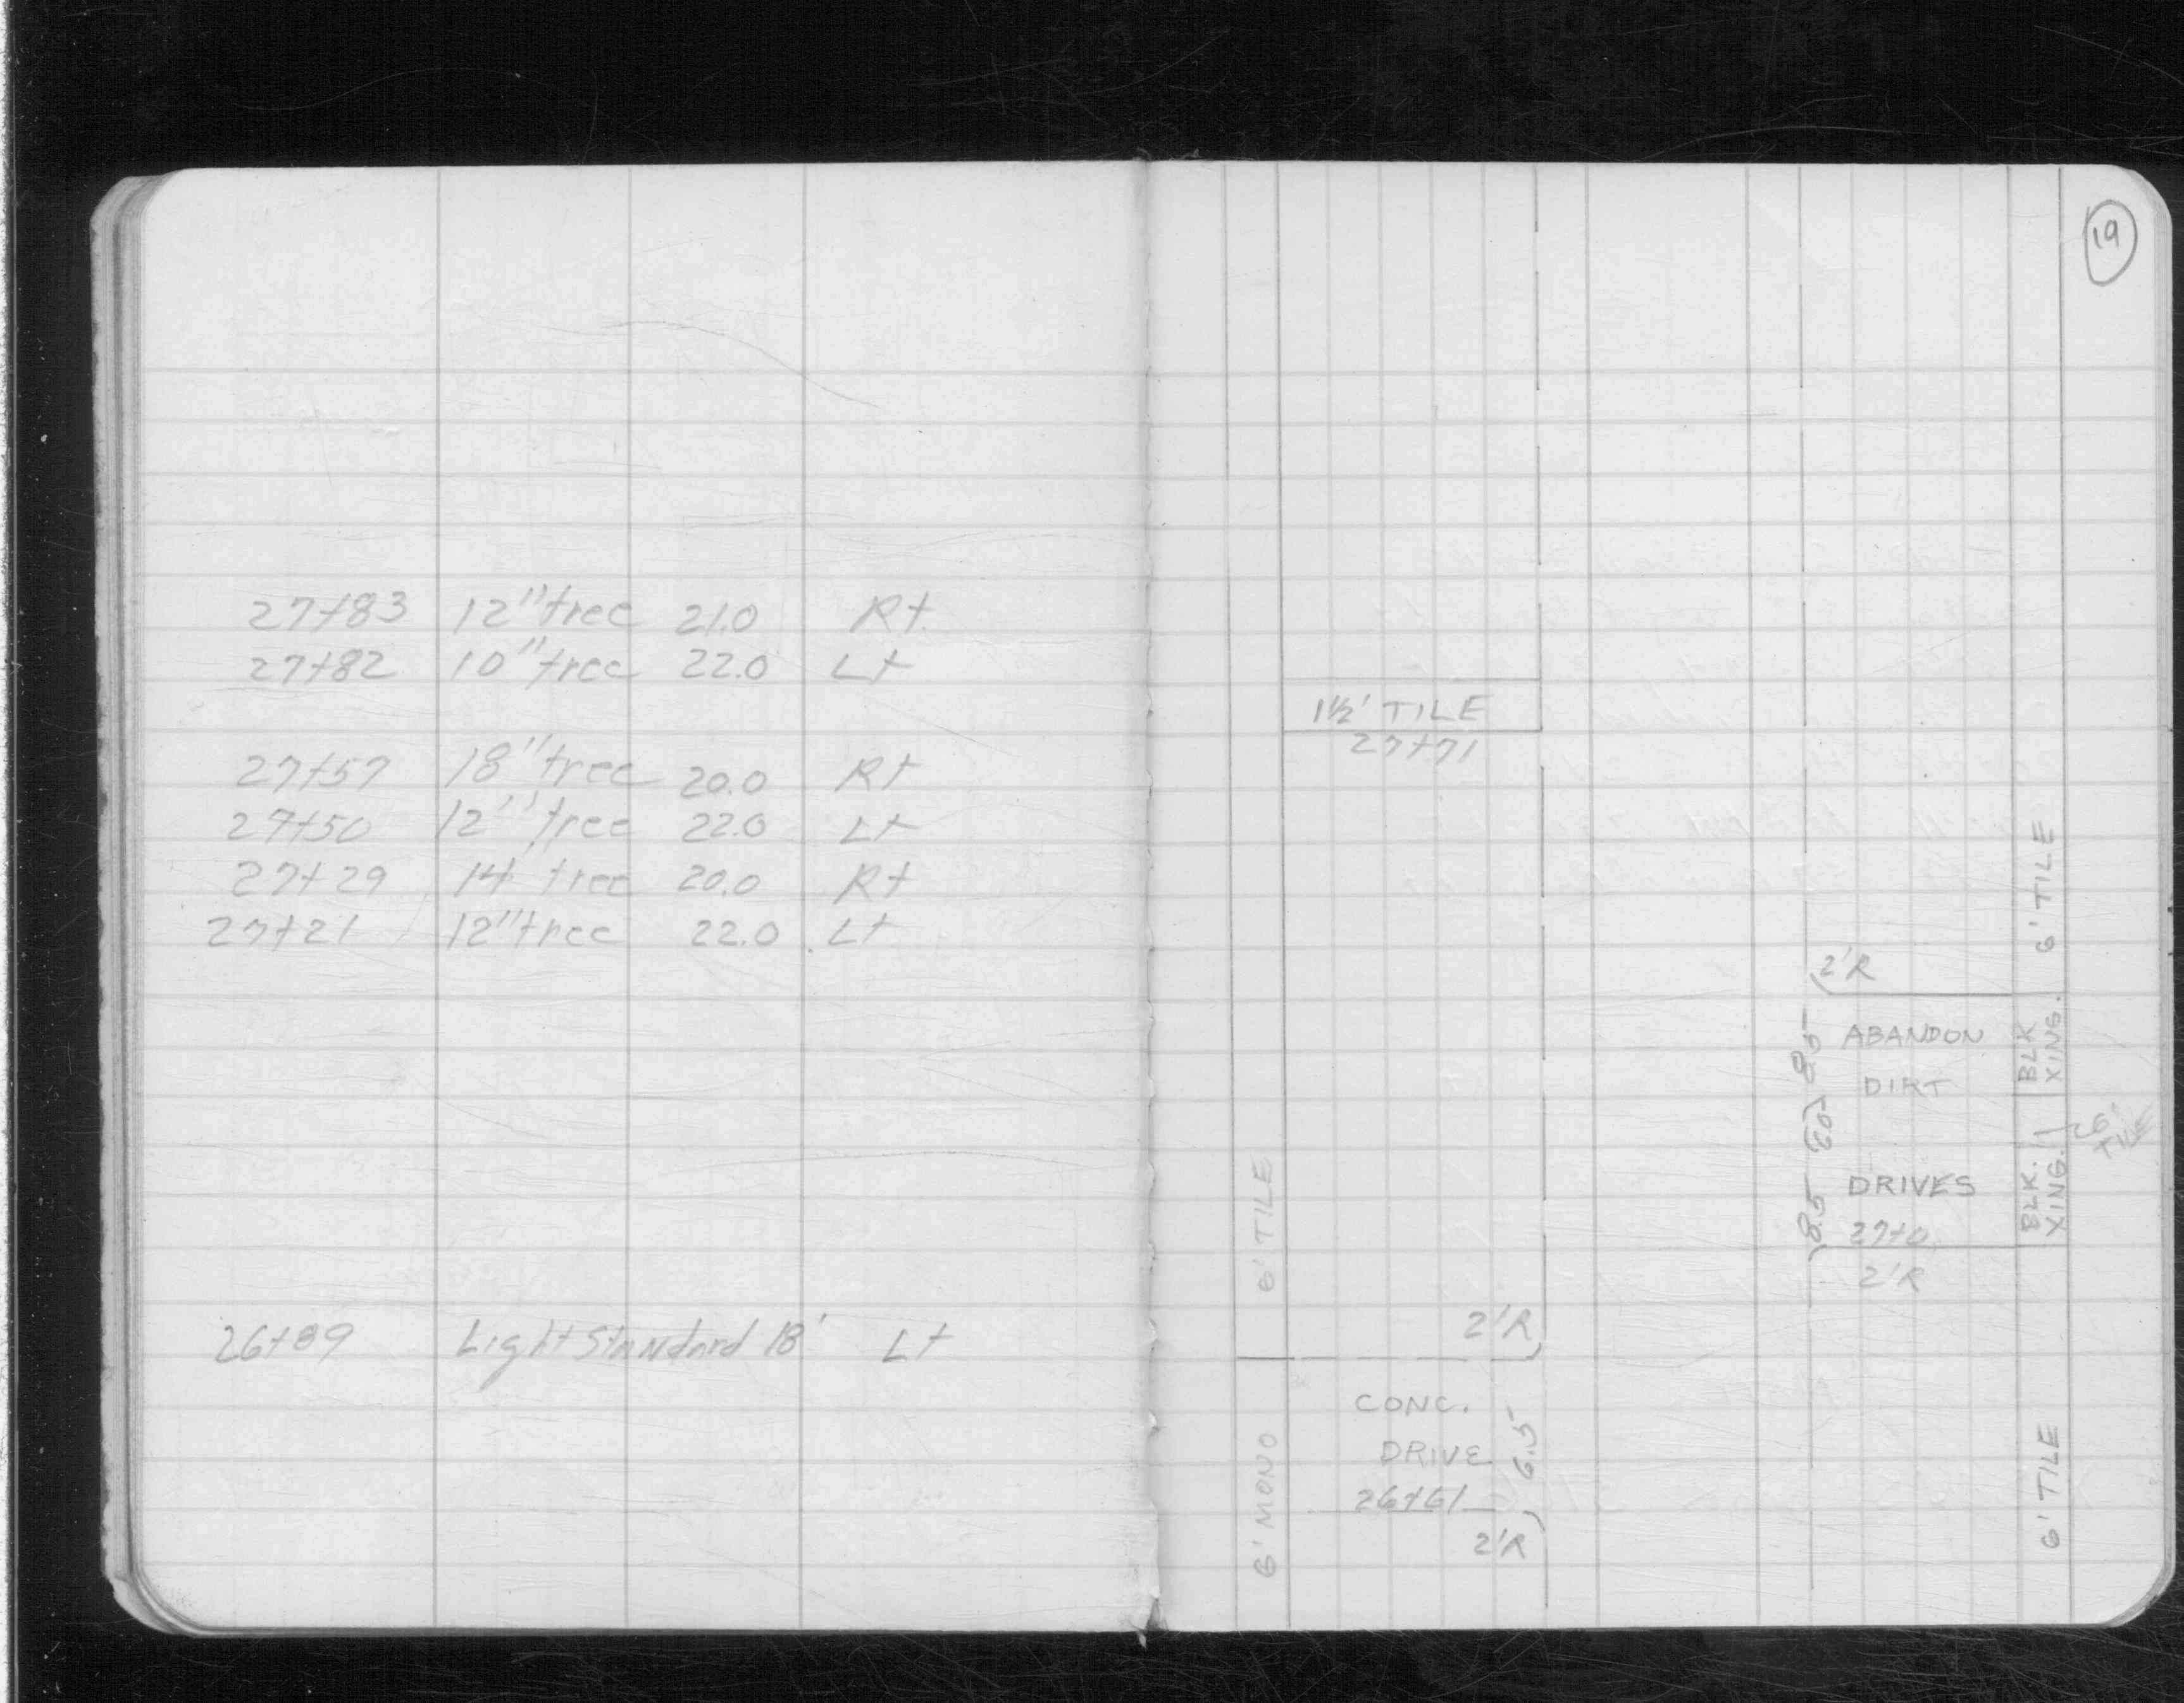 19
27+83 12" tree 21.0 Rt
27+82 10" tree 22.0 Lt
27+57 18" tree 20.0 Rt
27+50 12" tree 22.0 Lt
27+29 14 tree 20.0 Rt
27+21 12" tree 22.0 Lt
26+89 Light Standard 18' Lt
1½' TILE
27+71
6' TILE
2'R
CONC.
DRIVE
26+61
6.5
2'R
6' MONO
6' TILE
2'R
ABANDON
DIRT
DRIVES
27+0
2'R
8.5
8.5
BLK
XING.
BLK.
XING.
6'
TILE
6' TILE